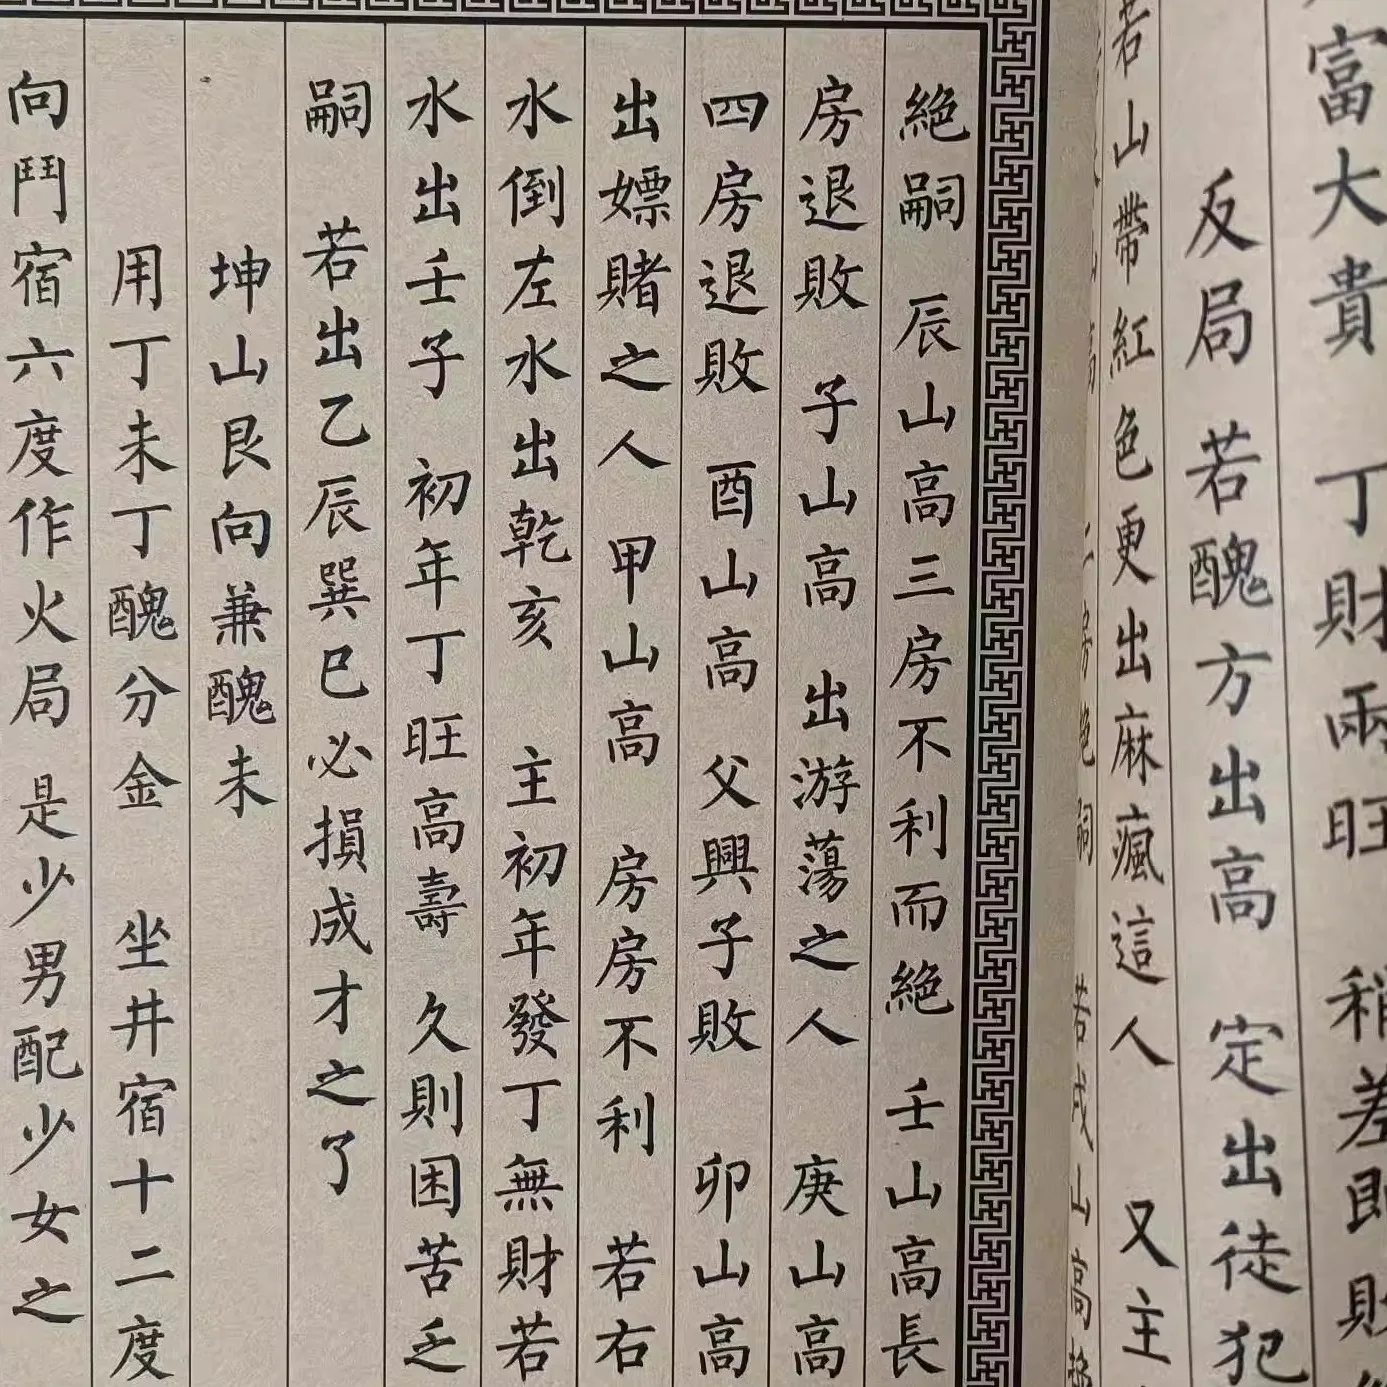 富大貴 丁財兩旺 稍差即財
反局 若醜方出高 定出徒犯
若山帶紅色更出麻瘋這人 又主
絕嗣 若戌山高
絕嗣 辰山高三房不利而絕 壬山高長
房退敗 子山高 出游蕩之人 庚山高
四房退敗 酉山高 父興子敗 卯山高
出嫖賭之人 甲山高 房房不利 若右
水倒左水出乾亥 主初年發丁無財若
水出壬子 初年丁旺高壽 久則困苦乏
嗣 若出乙辰巽巳必損成才之了
坤山艮向兼醜未
用丁未丁醜分金 坐井宿十二度
向鬥宿六度作火局 是少男配少女之